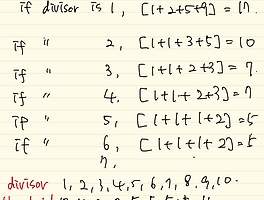 if divisor is 1, [1+2+5+9] = 17.
if " 2, [1+1+3+5] = 10
if " 3, [1+1+2+3] = 7.
if " 4, [1+1+2+3] = 7
if " 5, [1+1+1+2] = 5
if " 6, [1+1+1+2] = 5
7,
divisor 1, 2, 3, 4, 5, 6, 7, 8, 9, 10.